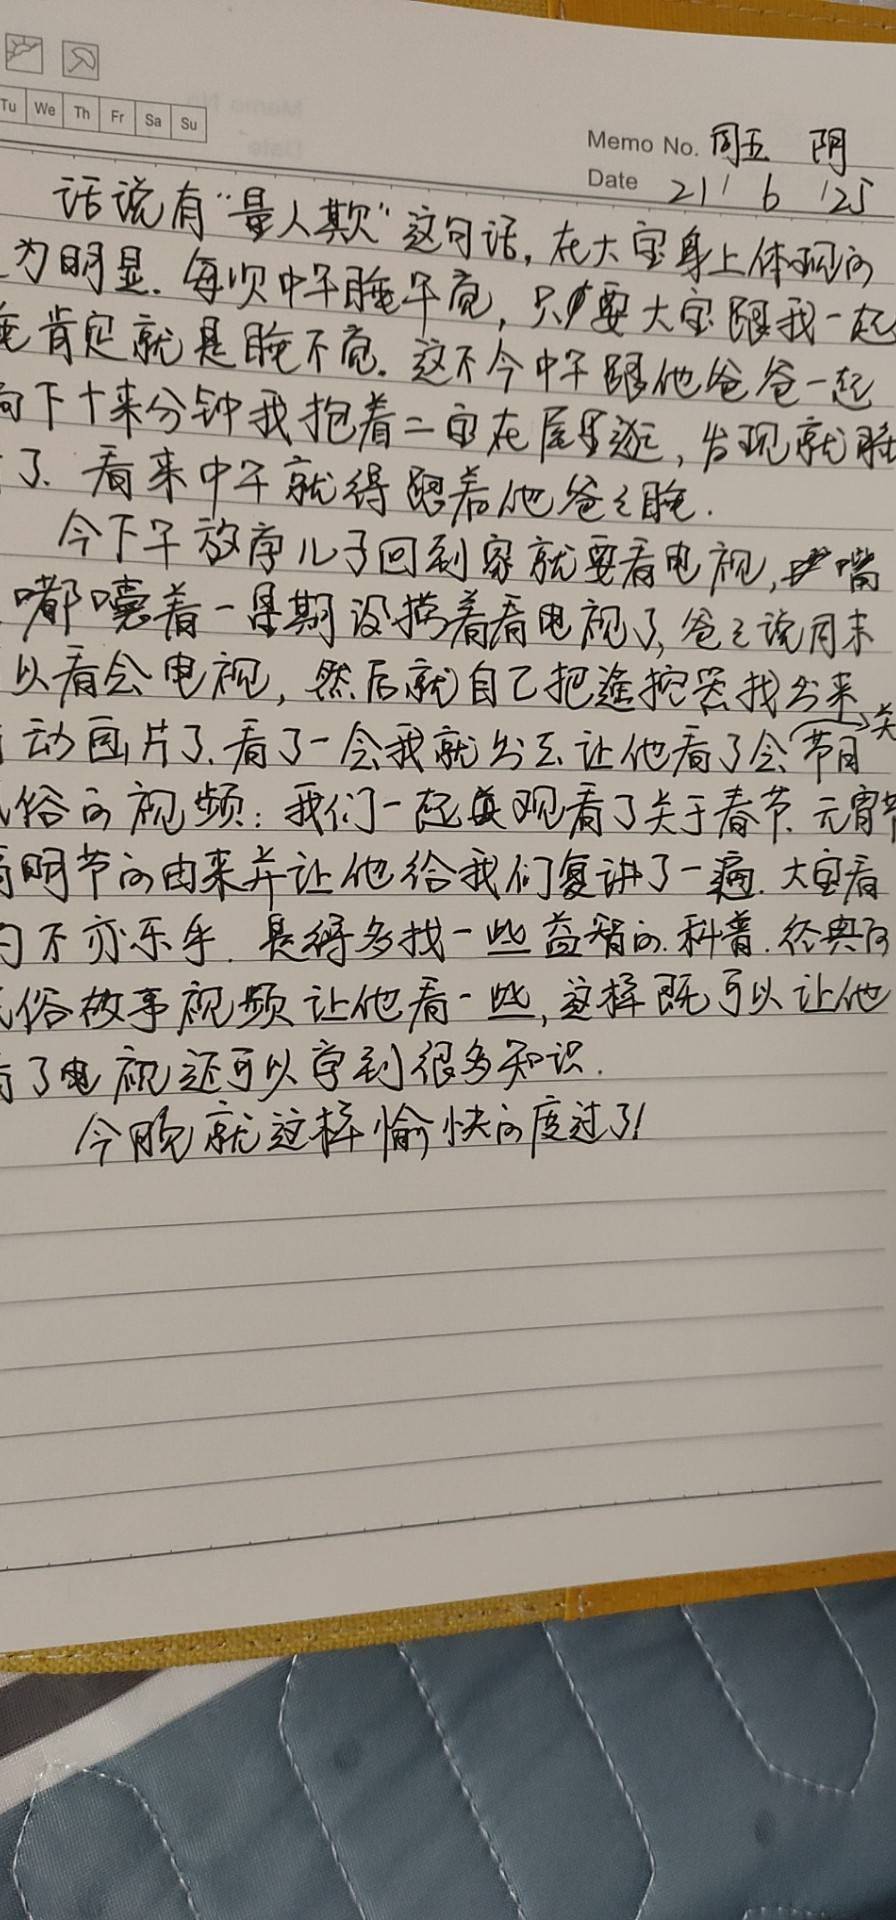 Tu We Th Fr Sa Su
Memo No. 周五 阴
Date 21 / 6 / 25
话说有“量人欺”这句话,在大宝身上体现的
为明显.每次中午睡午觉,只要大宝跟我一起
肯定就是睡不觉.这不今中午跟他爸爸一起
下十来分钟我抱着二宝在屋里逛,发现就睡
了.看来中午就得跟着他爸爸睡.
今下午放学儿子回到家就要看电视,嘴
嘟囔着一星期没捞着看电视了,爸爸说周末
以看会电视,然后就自己把遥控器找出来
动画片了.看了一会我就出去让他看了会节目关
俗的视频:我们一起观看了关于春节.元宵节
明节的由来并让他给我们复讲了一遍.大宝看
不亦乐乎.是得多找一些益智的.科普.经典的
俗故事视频让他看一些,这样既可以让他
了电视还可以学到很多知识.
今晚就这样愉快的度过了!